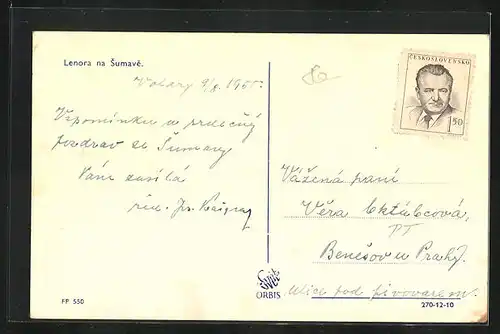 Lenora na Šumavě.
Volary 9/8 1955.
Vzpomínku a srdečný
pozdrav ze Šumavy
Vám zasílá
Vážená paní
Věra
PT
Benešov u Prahy.
Ulice pod pivovarem.
ČESKOSLOVENSKO
1.50
ORBIS
FP 550
270-12-10